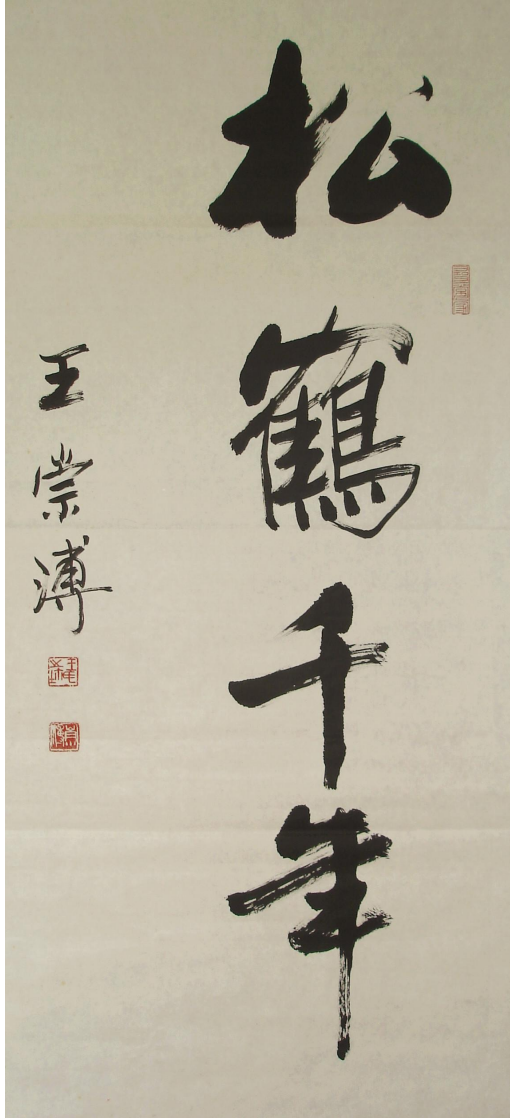 松鶴千年
王崇溥